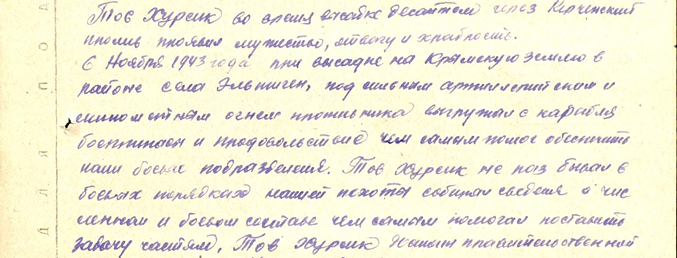 Тов Хурсик во время высадке десантом через Керченский
пролив проявил мужество, отвагу и храбрость.
6 Ноября 1943 года при высадке на Крымскую землю в
районе села Эльтиген, под сильным артиллерийским и
минометным огнем противника выгружал с карабля
боепитание и продовольствие чем самым помог обеспечить
наши боевые подразделения. Тов Хурсик не раз бывал в
боевых порядках нашей пехоты собирал сведения о чис
ленном и боевом составе чем самым помогал поставить
задачу частям. Тов Хурсик достоин правительственной
ДЛЯ ПО